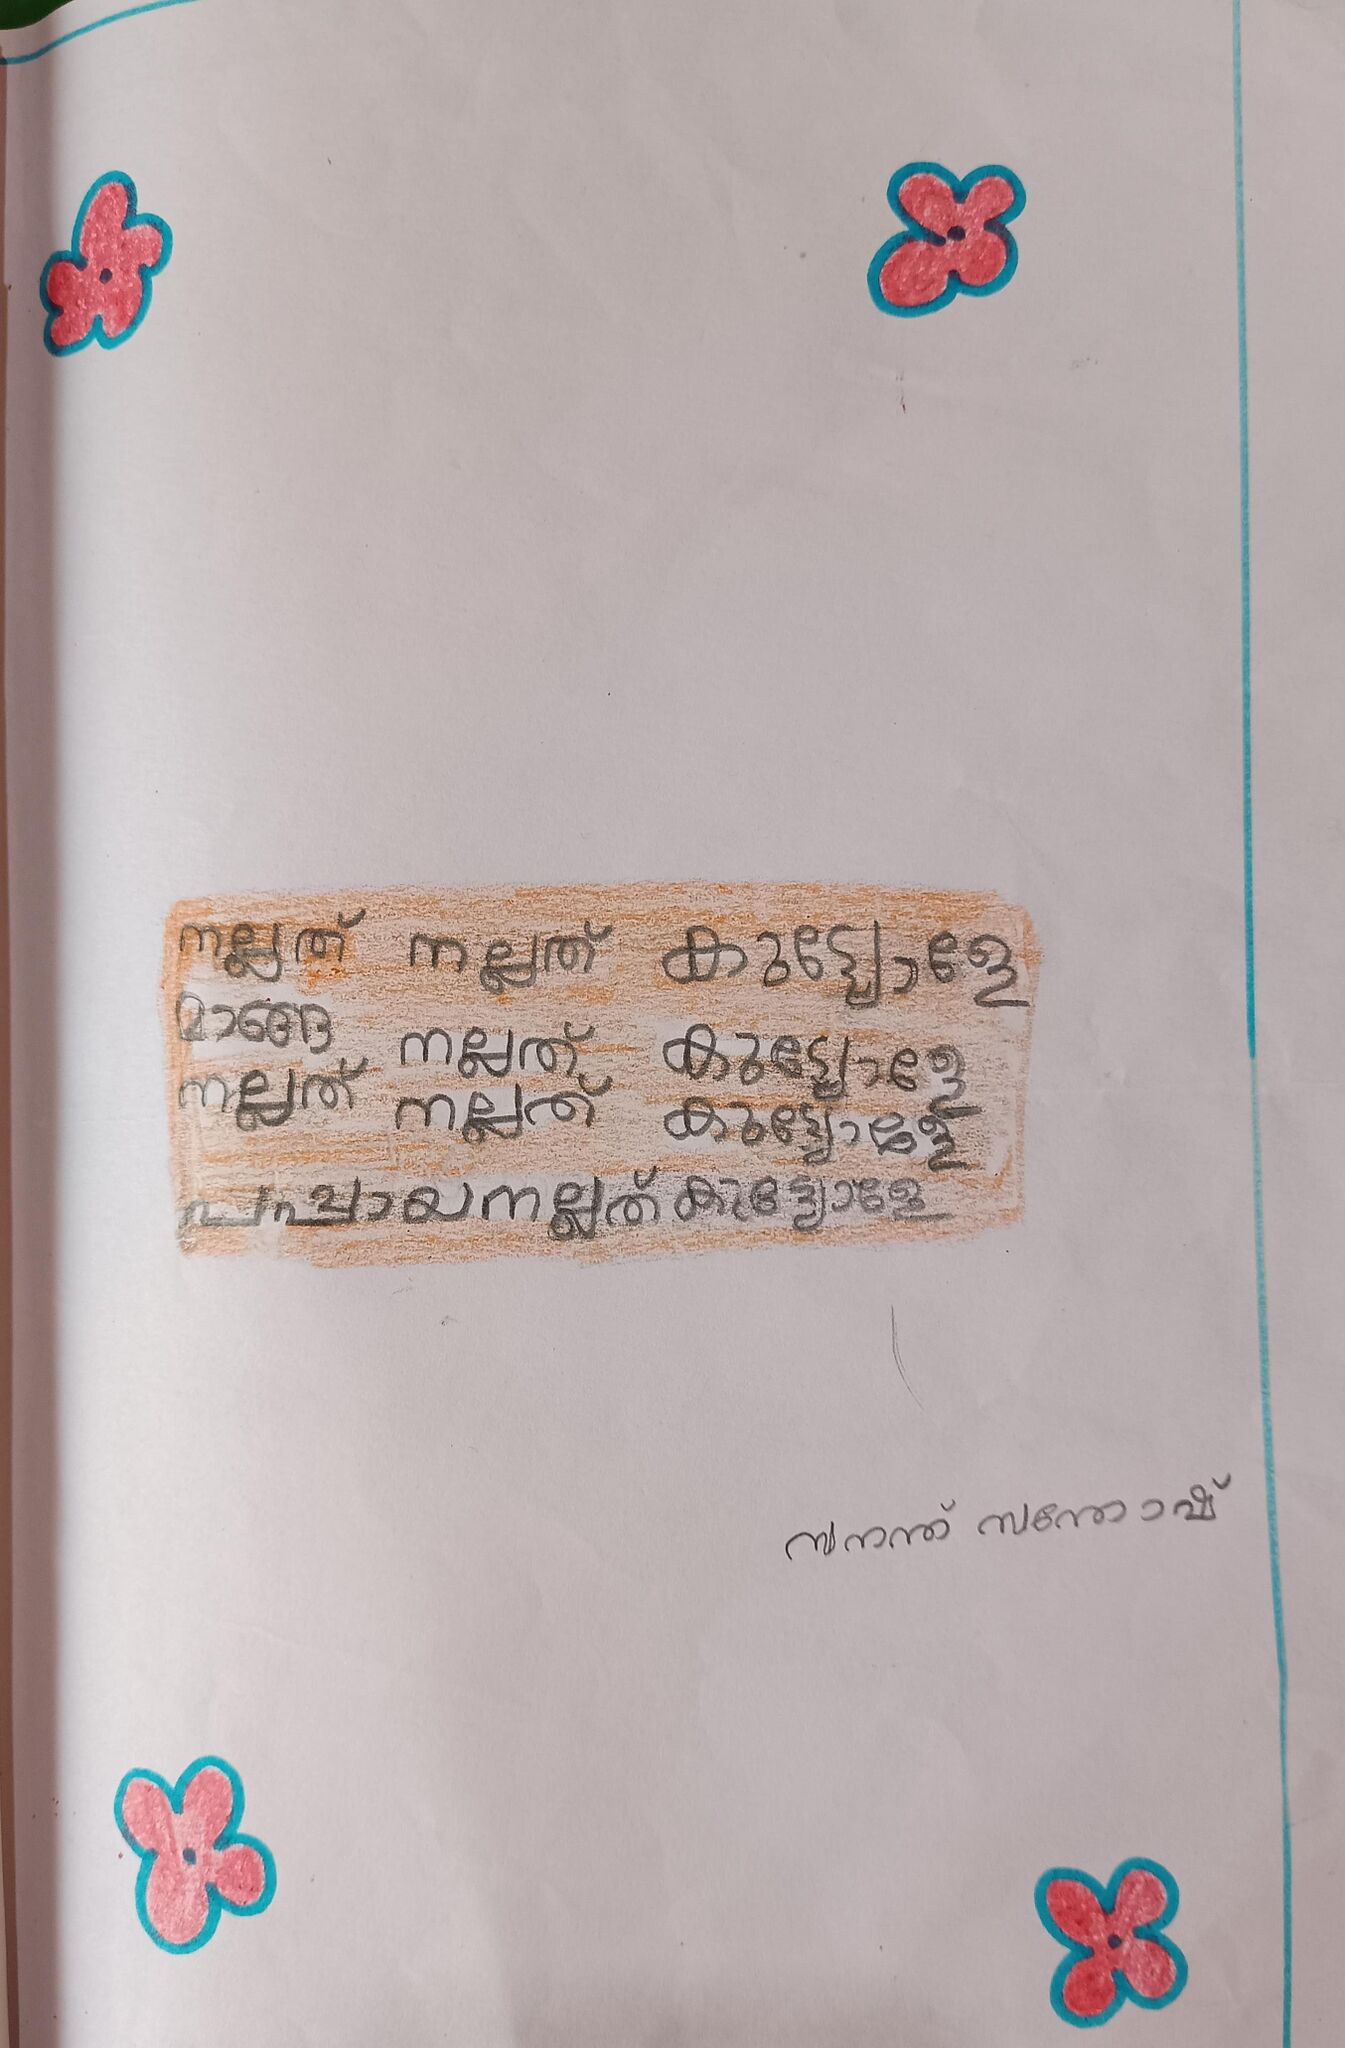 നല്ലത് നല്ലത് കൂട്ട്യോളേ
മാങ്ങ നല്ലത് കൂട്ട്യോളേ
നല്ലത് നല്ലത് കൂട്ട്യോളേ
പപ്പായ നല്ലത് കൂട്ട്യോളേ
സനന്ത് സന്തോഷ്